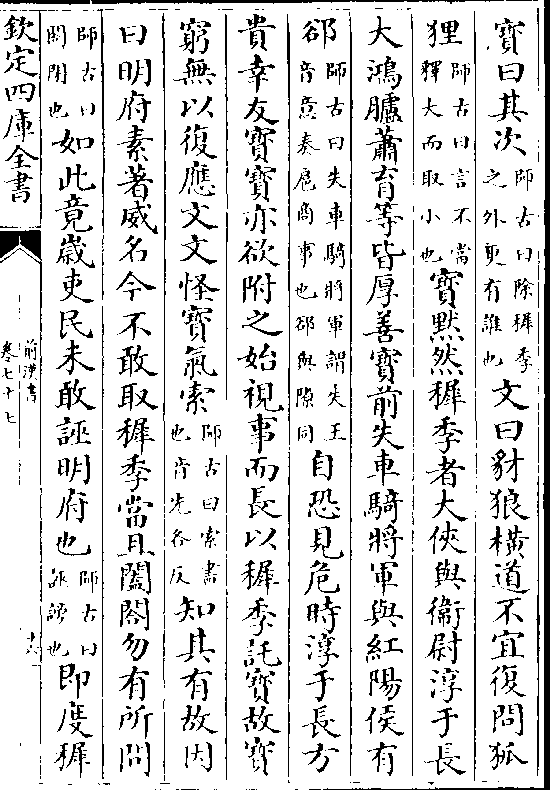 寳曰其次師古曰除穉季之外更有誰也文曰豺狼橫道不宜復問狐
狸師古曰言不當釋大而取小也寳黙然穉季者大俠與衞尉淳于長
大鴻臚蕭育等皆厚善寳前失車騎將軍與紅陽侯有
郤師古曰失車騎將軍謂失王音意奏扈商事也郤與隙同自恐見危時淳于長方
貴幸友寳寳亦欲附之始視事而長以穉季託寳故寳
窮無以復應文文怪寳氣索師古曰索盡也音先各反知其有故因
曰明府素著威名今不敢取穉季當且闔閤勿有所問
師古曰闔閉也如此竟嵗吏民未敢誣明府也師古曰誣謗也即度穉
欽定四庫全書
前漢書
卷七十七
十六